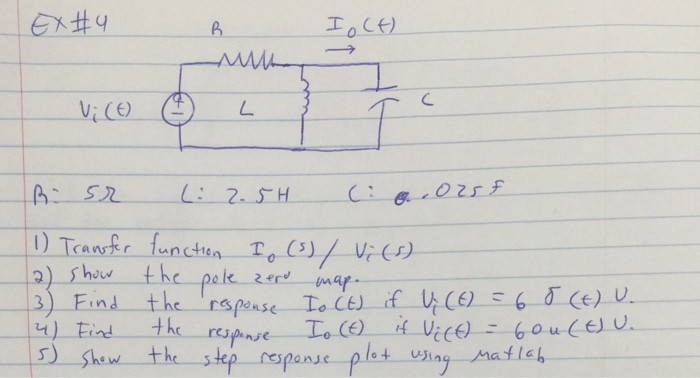 EX#4
R
I₀(t)
Vi(t)
L
C
R: 5Ω L: 2.5H C: .025F
1) Transfer function I₀(s)/Vi(s)
2) show the pole zero map.
3) Find the response I₀(t) if Vi(t) = 6 δ(t) V.
4) Find the response I₀(t) if Vi(t) = 60u(t) V.
5) Show the step response plot using Matlab